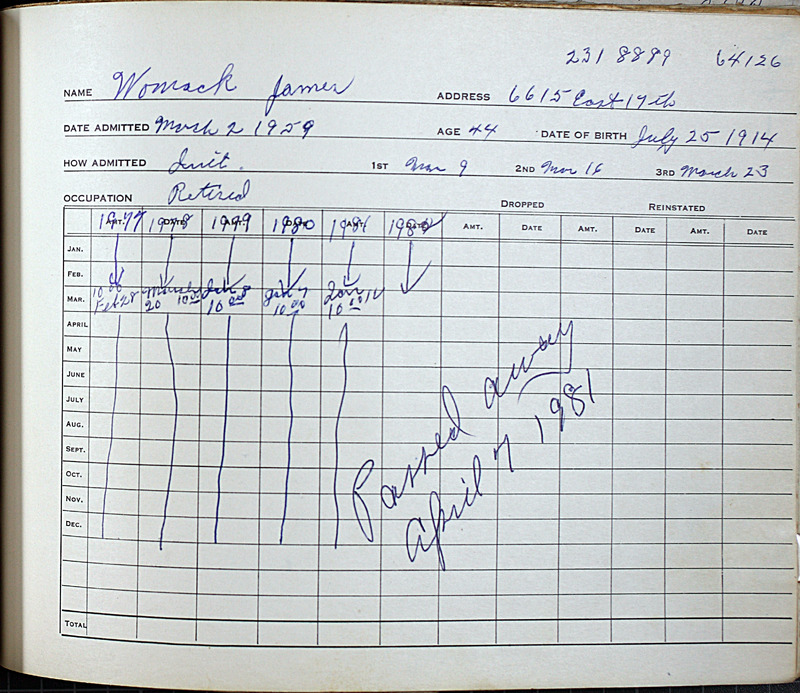 231 8899 64126
NAME Womack James ADDRESS 6615 East 19th
DATE ADMITTED March 2 1959 AGE 44 DATE OF BIRTH July 25 1914
HOW ADMITTED Init. 1ST Mar 9 2ND Mar 16 3RD March 23
OCCUPATION Retired
DROPPED REINSTATED
1977 1978 1979 1980 1981 1982 AMT. DATE AMT. DATE AMT. DATE
JAN.
FEB.
MAR. 10.00 Feb 28 March 20 10.00 Jan 8 10.00 Jan 7 10.00 Jan 10.00
APRIL
MAY
JUNE
JULY
AUG.
SEPT.
OCT.
NOV.
DEC.
Passed away
April 7 1981
TOTAL